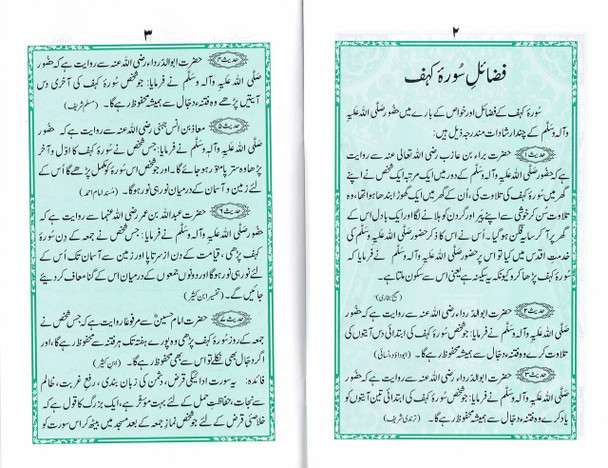 ۲
فضائلِ سُورۂ کہف
سُورۂ کہف کے فضائل اور خواص کے بارے میں حضُور صلّی اللہ علیہِ
وآلہٖ وسلّم کے چند ارشادات مندرجہ ذیل ہیں:
حدیث ۱ حضرت براء بن عازب رضی اللہ تعالی عنہ سے روایت
ہے کہ حضُور صلّی اللہ علیہِ وآلہٖ وسلّم کے دَور میں ایک مرتبہ ایک شخص نے اپنے
گھر میں سُورۂ کہف کی تلاوت کی، اُن کے گھر میں ایک گھوڑا بندھا ہوا تھا، وہ
تلاوت سن کر خوشی سے اپنے پَیر اور گردن کو ہلانے لگا اور ایک بادل اس کے
گھر پر آ کر سایہ فگن ہو گیا۔ اُس نے اس کا ذکر حضُور صلّی اللہ علیہِ وآلہٖ وسلّم کی
خدمتِ اقدس میں کیا تو اس پر حضُور صلّی اللہ علیہِ وآلہٖ وسلّم نے فرمایا: سُورۂ
کہف پڑھا کرو کیونکہ یہ سکینہ ہے یعنی اس سے سکون ملتا ہے۔
(صحیح بخاری)
حدیث ۲ حضرت ابوالدّرداء رضی اللہ عنہ سے روایت ہے کہ حضُور
صلّی اللہ علیہِ وآلہٖ وسلّم نے فرمایا: جو شخص سُورۂ کہف کی ابتدائی دس آیتوں کی
تلاوت کرے وہ فتنہ دجّال سے ہمیشہ محفوظ رہے گا۔ (ابوداؤد، نسائی)
حدیث ۳ حضرت ابوالدّرداء رضی اللہ عنہ سے روایت ہے کہ حضُور
صلّی اللہ علیہِ وآلہٖ وسلّم نے فرمایا: جو شخص سُورۂ کہف کی ابتدائی تین آیتوں کو
یاد کرے وہ فتنہ دجّال سے ہمیشہ محفوظ رہے گا۔ (ترمذی شریف)
۳
حدیث ۴ حضرت ابوالدّرداء رضی اللہ عنہ سے روایت ہے کہ حضُور
صلّی اللہ علیہِ وآلہٖ وسلّم نے فرمایا: جو شخص سُورۂ کہف کی آخری دس
آیتیں پڑھے وہ فتنہ دجّال سے ہمیشہ محفوظ رہے گا۔ (مسلم شریف)
حدیث ۵ معاذ بن انس جہنی رضی اللہ عنہ سے روایت ہے کہ حضُور
صلّی اللہ علیہِ وآلہٖ وسلّم نے فرمایا: جس شخص نے سُورۂ کہف کا اوّل و آخر
پڑھا وہ ستر پا منوّر ہو جائے گا۔ اور جو شخص اس سُورۂ کو مکمل پڑھے گا اُس کے
لئے زمین و آسمان کے درمیان نور ہی نور ہو گا۔ (مسند امام احمد)
حدیث ۶ حضرت عبداللہ بن عمر رضی اللہ عنہما سے روایت ہے کہ
حضُور صلّی اللہ علیہِ وآلہٖ وسلّم نے فرمایا: جس شخص نے جمعہ کے دن سُورۂ
کہف پڑھی، قیامت کے دن از سرتاپا اور زمین سے آسمان تک اُس کے
لئے نور ہی نور ہو گا اور دونوں جمعوں کے درمیان اس کے گناہ معاف کر دیئے
جائیں گے۔ (تفسیر ابن کثیر)
حدیث ۷ حضرت امام حسینؓ سے مرفوعاً روایت ہے کہ جس شخص نے
جمعہ کے روز سُورۂ کہف پڑھی وہ پورے ہفتہ تک ہر فتنہ سے محفوظ رہے گا، اور
اگر دجّال بھی نکلے تو اس سے بھی محفوظ رہے گا۔ (ابن کثیر)
فائدہ: یہ سورت ادائیگی قرض، دشمن کی زبان بندی، رفع غربت، ظالم
سے نجات، حفاظتِ حمل کے لئے بہت مؤثر ہے، ایک بزرگ کا قول ہے کہ
خلاصئی قرض کے لئے جو شخص نمازِ جمعہ کے بعد مسجد میں بیٹھ کر اس سورت کو